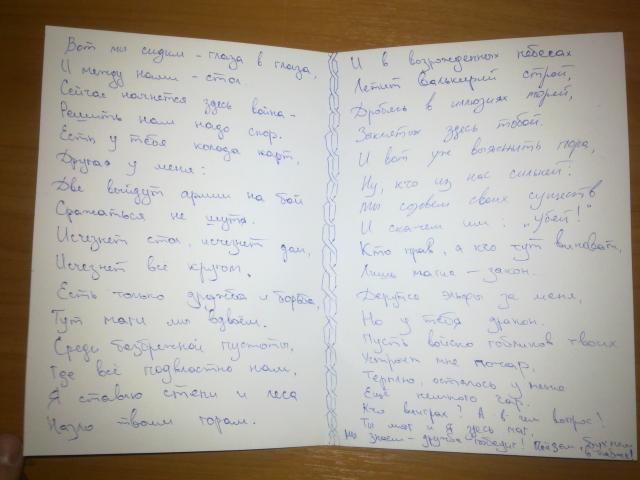 Вот мы сидим - глаза в глаза,
И между нами - стол.
Сейчас начнётся здесь война -
Решить нам надо спор.
Есть у тебя колода карт,
Другая у меня:
Две выйдут армии на бой
Сражаться не шутя.
Исчезнет стол, исчезнет дом,
Исчезнет всё кругом.
Есть только дружба и борьба,
Тут маги мы вдвоём.
Средь безбрежной пустоты,
Где всё подвластно нам,
Я ставлю степи и леса
Назло твоим горам.
И в возрожденных небесах
Летит Валькирий строй,
Дробясь в иллюзиях морей,
Заклятых здесь тобой.
И вот уж выяснить пора,
Ну, кто из нас сильней:
Мы созовём своих существ
И скажем им: "Убей!"
Кто прав, а кто тут виноват,
Лишь магия - закон.
Дерутся эльфы за меня,
Но у тебя дракон.
Пусть войско гоблинов твоих
Устроит мне пожар,
Терпимо, осталось у меня
Ещё немного чар.
Кто выиграл? А в чём вопрос!
Ты маг и я здесь маг,
Мы знаем - дружба победит!